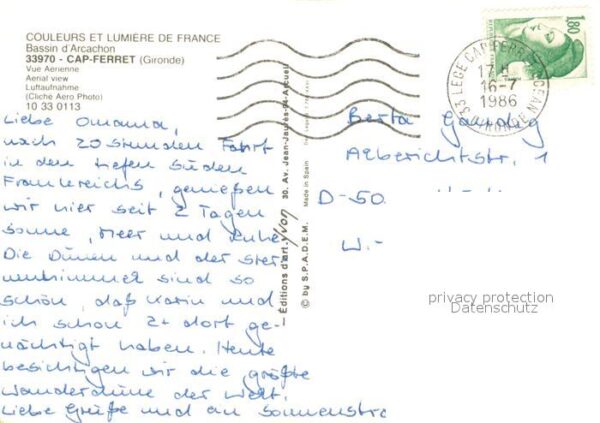 COULEURS ET LUMIERE DE FRANCE
Bassin d'Arcachon
33970 - CAP-FERRET (Gironde)
Vue Aérienne
Aerial view
Luftaufnahme
(Cliche Aero Photo)
10 33 0113
Liebe Omama,
nach 20 stunden Fahrt
in den tiefen Süden
Frankreichs, genießen
wir hier seit 2 Tagen
Sonne, Meer und Ruhe.
Die Dünen und der Ster-
nenhimmel sind so
schön, daß Karin und
ich schon 2x dort ge-
nächtigt haben. Heute
besichtigen wir die größte
Wanderdüne der Welt.
Liebe Grüße und an Sonnenstra
Éditions d'art Yvon 30, Av. Jean-Jaurès-94-Arcueil
© by S.P.A.D.E.M. Made in Spain
1,80
33 LEGE CAP FERRET OCEAN
17 H
16-7
1986
GIRONDE
Berta
Alberichtstr. 1
D-50
W.-
privacy protection
Datenschutz